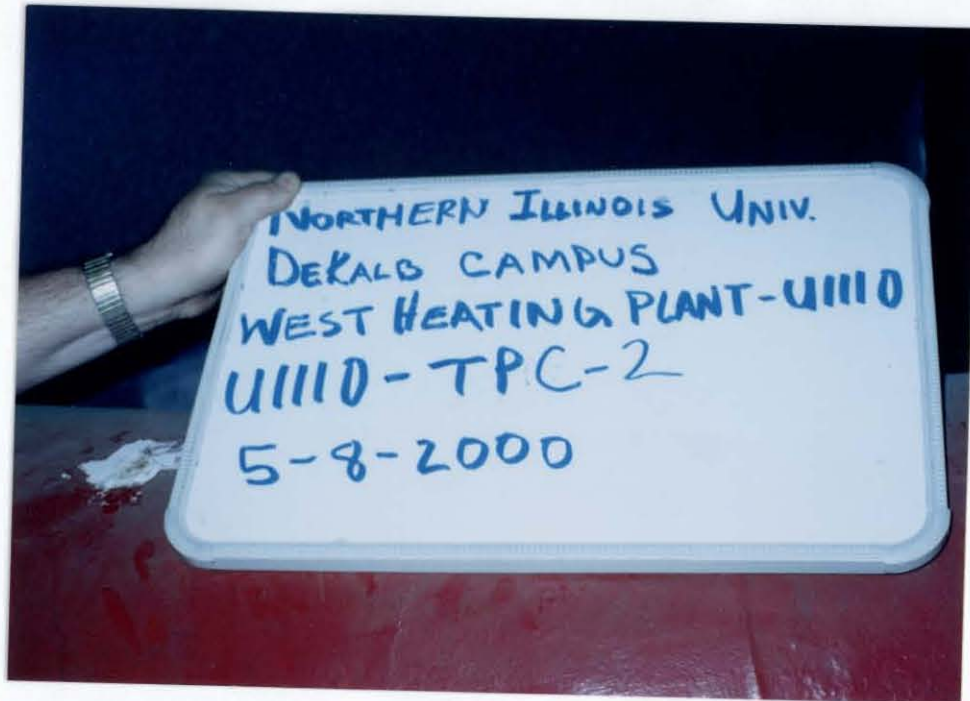 NORTHERN ILLINOIS UNIV.
DEKALB CAMPUS
WEST HEATING PLANT-U1110
U1110-TPC-2
5-8-2000